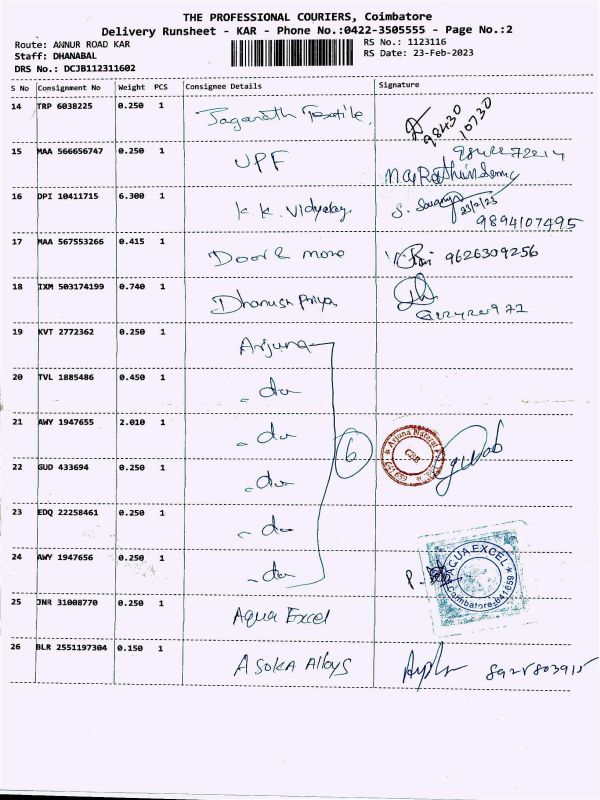 THE PROFESSIONAL COURIERS, Coimbatore
Delivery Runsheet - KAR - Phone No.:0422-3505555 - Page No.:2
Route: ANNUR ROAD KAR
RS No.: 1123116
Staff: DHANABAL
RS Date: 23-Feb-2023
DRS No.: DCJB112311602
S No Consignment No Weight PCS Consignee Details Signature
14 TRP 6038225 0.250 1 Jaganath Textile.
98430
10730
15 MAA 566656747 0.250 1 UPF
16 DPI 10411715 6.300 1 K K. Vidyalay
23/2/23
9894107495
17 MAA 567553266 0.415 1 Door & more 9626309256
18 IXM 503174199 0.740 1 Dhanush Priya
19 KVT 2772362 0.250 1 Arjuna
20 TVL 1885486 0.450 1 - do
21 AWY 1947655 2.010 1 - do
6
Arjuna Natural
CBE
641 659
22 GUD 433694 0.250 1 - do
23 EDQ 22258461 0.250 1 - do
24 AWY 1947656 0.250 1 - do
AQUA EXCEL
Coimbatore-641659
25 JNR 31008770 0.250 1 Aqua Excel
26 BLR 2551197304 0.150 1 Asoka Alloys 8925803915